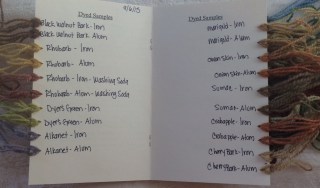 9/6/13
Dyed Samples
Black Walnut Bark - Iron
Black Walnut Bark - Alum
Rhubarb - Iron
Rhubarb - Alum
Rhubarb - Iron - Washing Soda
Rhubarb - Alum - Washing Soda
Dyer's Broom - Iron
Dyer's Broom - Alum
Alkanet - Iron
Alkanet - Alum
Dyed Samples
Marigold - Iron
Marigold - Alum
Onion Skin - Iron
Onion Skin - Alum
Sumac - Iron
Sumac - Alum
Crabapple - Iron
Crabapple - Alum
Cherry Bark - Iron
Cherry Bark - Alum